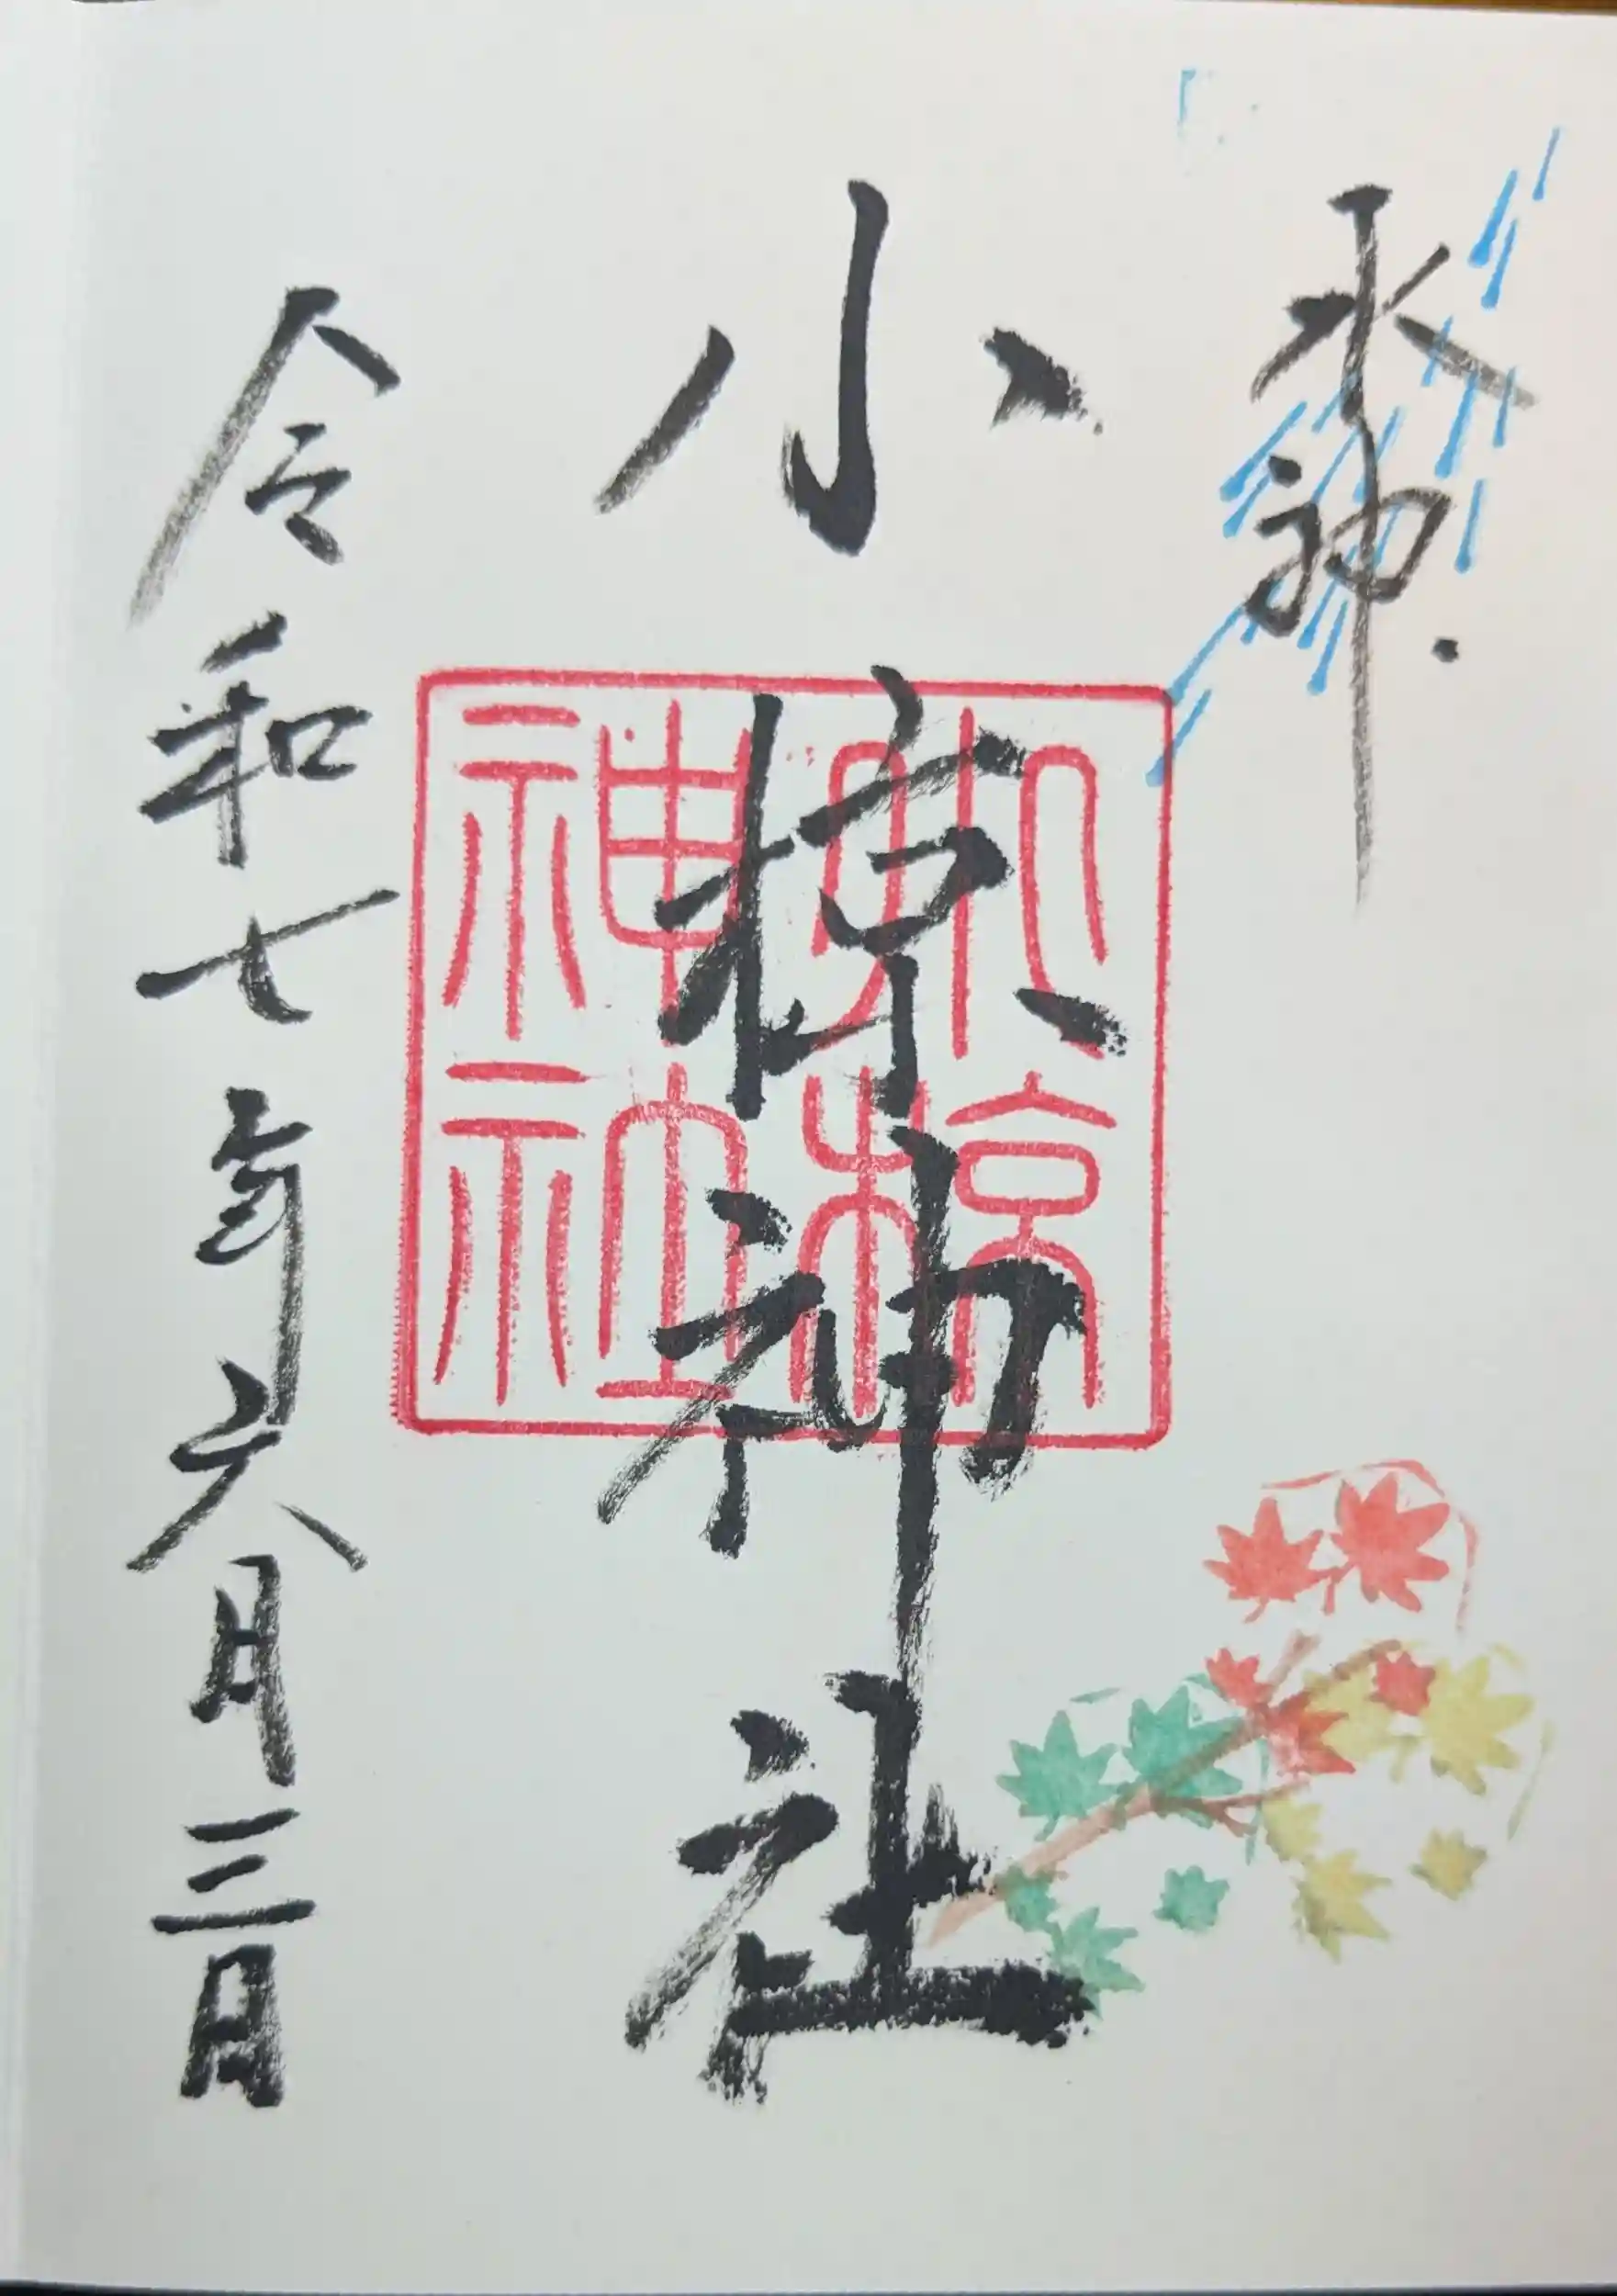 水神
小椋神社
小椋
神社
令和七年六月三日